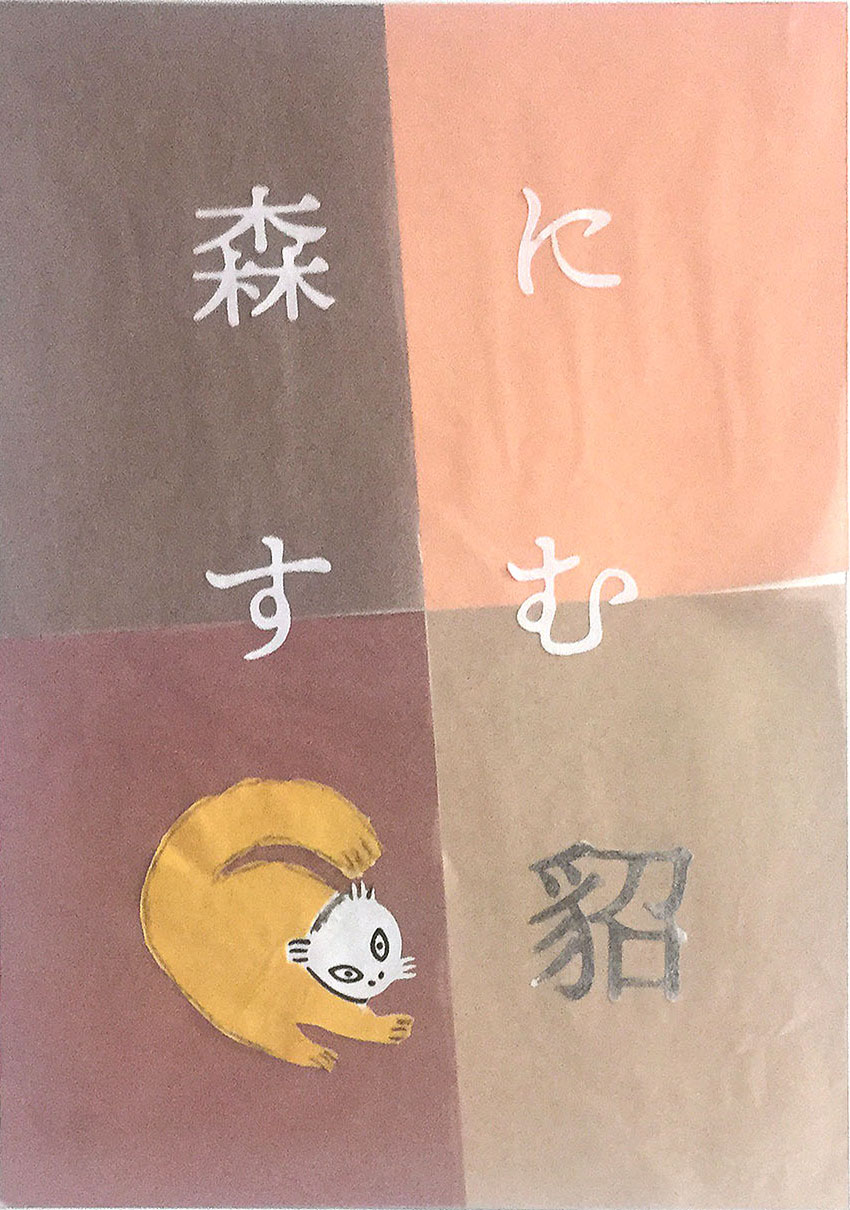 森に
すむ
貂